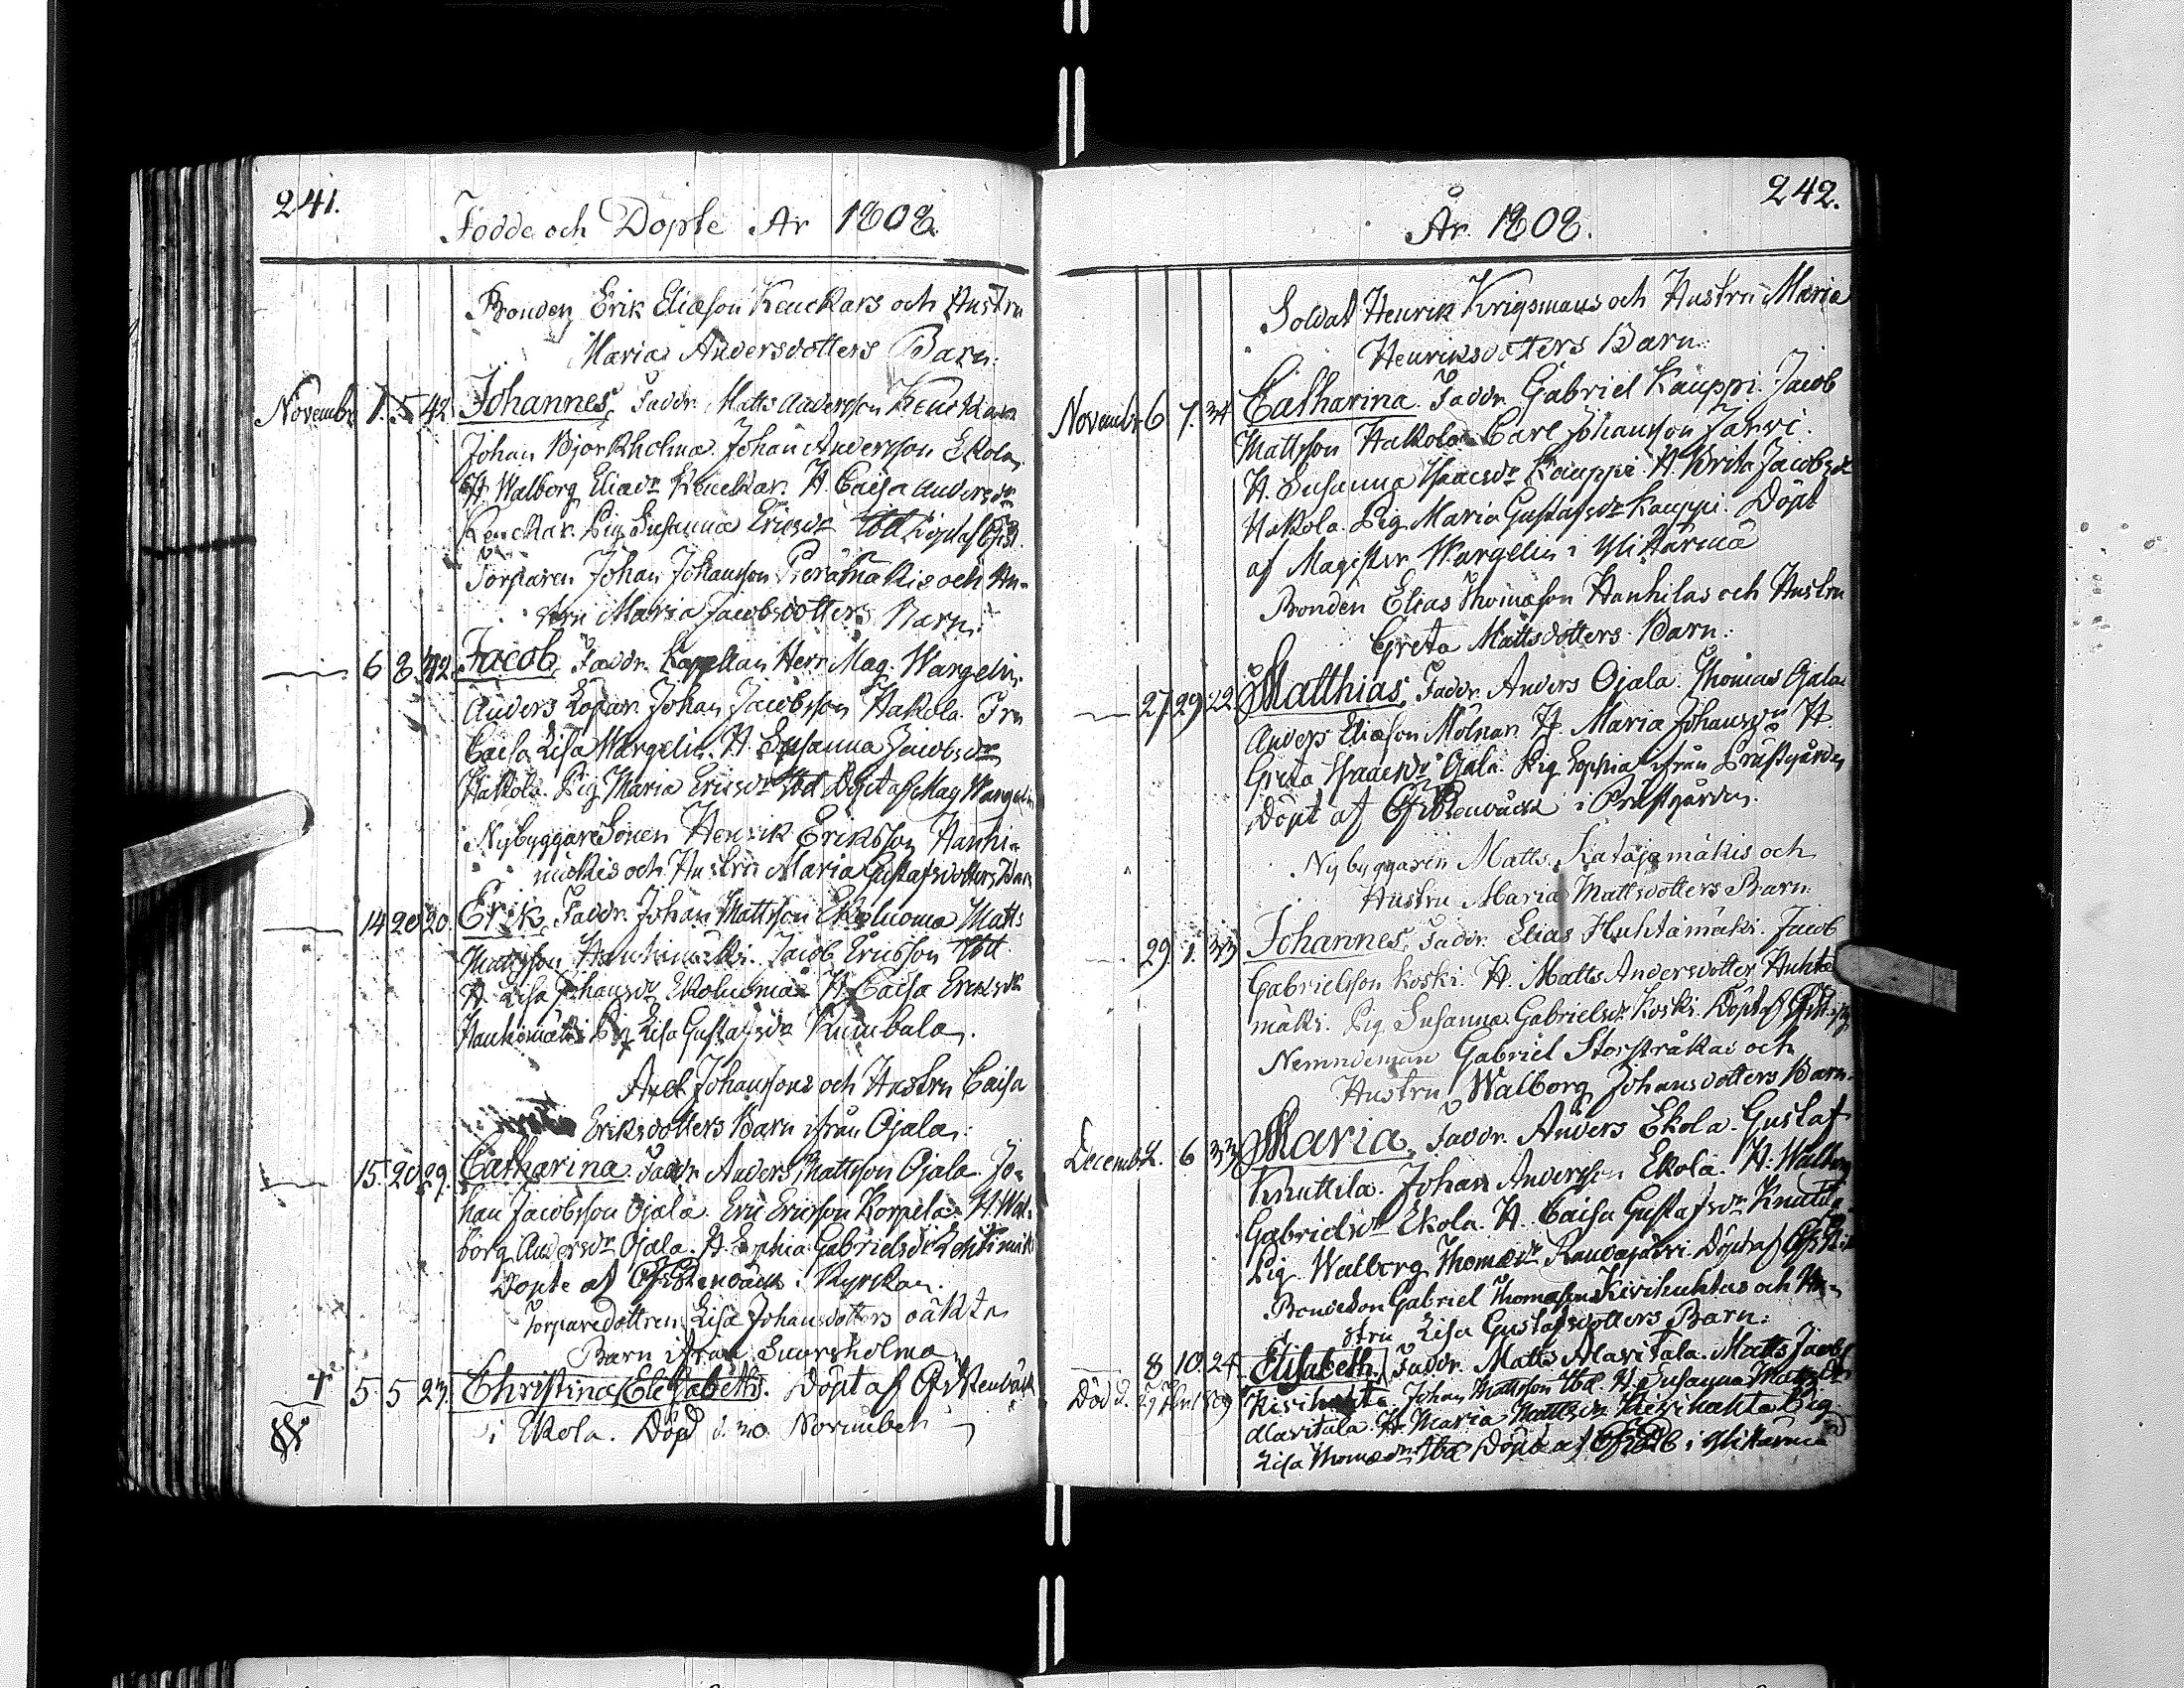 241.
Födde och Döpte År 1808.
Bonden Erik Eliæson Kenckars och Hustru
Maria Andersdotters Barn:
Novembr 1. 5 42. Johannes, Faddr. Matts Andersson Kenckar
Johan Björkholma. Johan Andersson Ekola,
H. Walborg Eliædr Kenckar. H. Caisa Andersdr
Kenckar. Pig. Susanna Ericsdr Ibd
Torparen Johan Johansson Perämäkis och Hu-
stru Maria Jacobsdotters Barn:
6 8 42. Jacob, Faddr. Kapellan Herr Mag. Wargelin
Anders Lopar. Johan Jacobsson Hakola. Fru
Caisa Lisa Wargelin. H. Susanna Jacobsdr
Hakola. Pig. Maria Ericsdr Ibd Döpt af Mag Wargelin
Nybyggare Sonen Henrik Eriksson Hanhi-
mäkis och Hustru Maria Gustafsdotters Barn
14 20 20. Erik, Faddr. Johan Mattsson Ekoluoma Matts
Mattsson Hanhimäki. Jacob Ericsson Ibd
H. Lisa Johansdr Ekoluoma H. Caisa Eriksdr
Hanhimäki Pig. Lisa Gustafsdr Kumbala.
Axel Johanssons och Hustru Caisa
Eriksdotters Barn ifrån Ojala:
15. 20 29. Catharina. Faddr. Anders Mattsson Ojala. Jo-
han Jacobsson Ojala. Eric Ericsson Korpela. H. Wal-
borg Andersdr Ojala. H. Sophia Gabrielsdr Lehtimäki
Döpte af Stenbäck i Kyrckan.
Torparedottren Lisa Johansdotters oäkta
Barn ifrån Suorsholma
+ 5 5 23. Christina, Elisabeth. Döpt af Stenbäck
i Ekola. Död d. 30 November
242.
År 1808.
Soldat Henrik Krigsmans och Hustru Maria
Henriksdotters Barn:
Novembr 6 7. 34 Catharina. Faddr. Gabriel Kauppi. Jacob
Mattsson Hakola. Carl Johansson Jarvi.
H. Susanna Isaacsdr Kauppi. H. Brita Jacobsdr
Hakola. Pig. Maria Gustafsdr Kauppi. Döpt
af Magister Wargelin i Ylistarmå
Bonden Elias Thomæson Hanhilas och Hustru
Greta Mattsdotters Barn:
27 29 22. Matthias, Faddr. Anders Ojala. Thomas Ojala
Anders Eliæson Mölnar. H. Maria Johansdr H.
Greta Isaacsdr Ojala. Pig Sophia ifrån Prästgården
Döpt af Stenbäck i Prästgården.
Nybyggaren Matts Katajamäkis och
Hustru Maria Mattsdotters Barn:
29 1. 33 Johannes, Faddr. Elias Huhtamäki. Jacob
Gabrielsson Koski. H. Matts Andersdotter Huhta
mäki. Pig. Susanna Gabrielsdr Koski. Döpt af
Nemndeman Gabriel Storstråkas och
Hustru Walborg Johansdotters Barn.
Decemb. 2. 6 33 Maria, Faddr. Anders Ekola. Gustaf
Knuttila. Johan Andersson Ekola. H. Walborg
Gabrielsdr Ekola. H. Caisa Gustafsdr Knuttila
Pig. Walborg Thomædr Randajärvi. Döpt af
Bondeson Gabriel Thomæson Kirihuhtas och Hu-
stru Lisa Gustafsdotters Barn:
8 10. 24. Elisabeth, Faddr. Matts Alavitala. Matts Jacobss
Död d. 27 1809 Kirihuhta Johan Mattsson Ibd. H. Susanna
Alavitala. H. Maria Mattsdr Kirihuhta Pig
Lisa Thomædr Ibd Döpt af i Ylistarmå